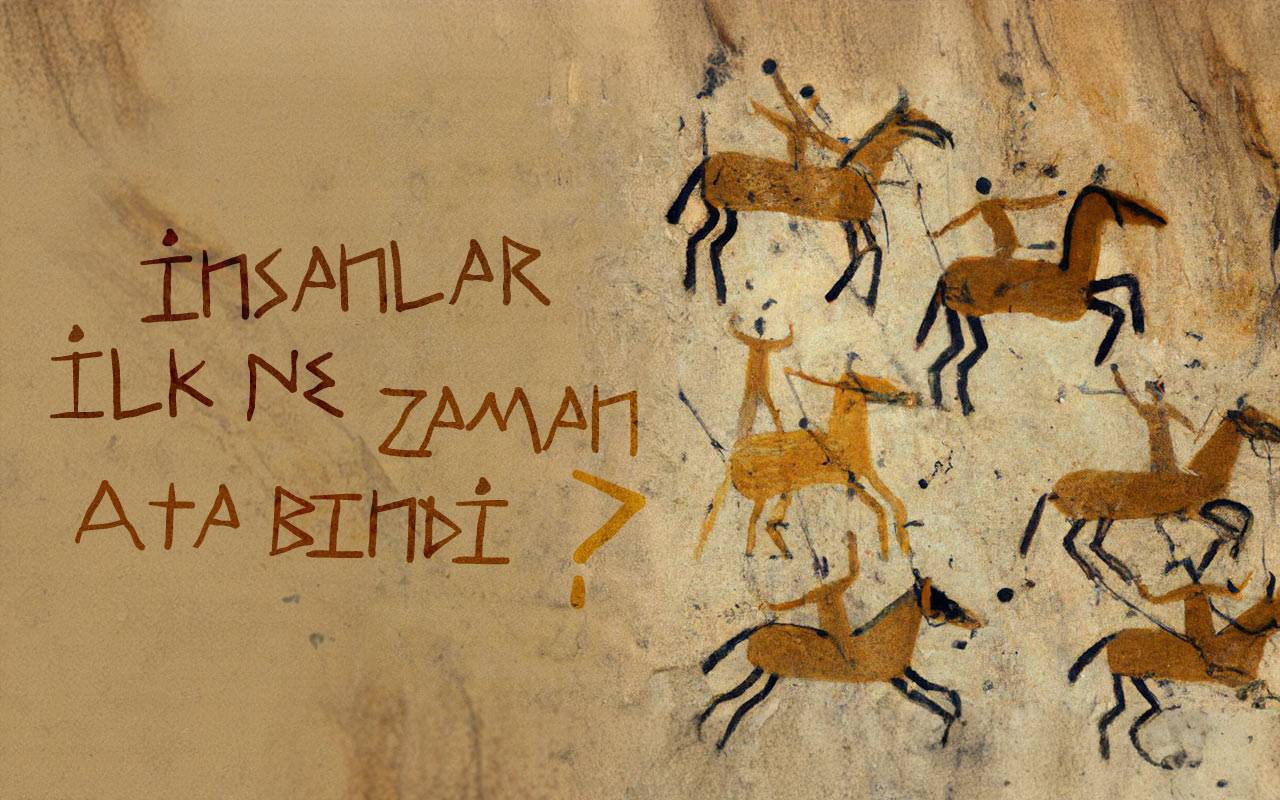 İNSANLAR
İLK NE ZAMAN
ATA BINDİ ?